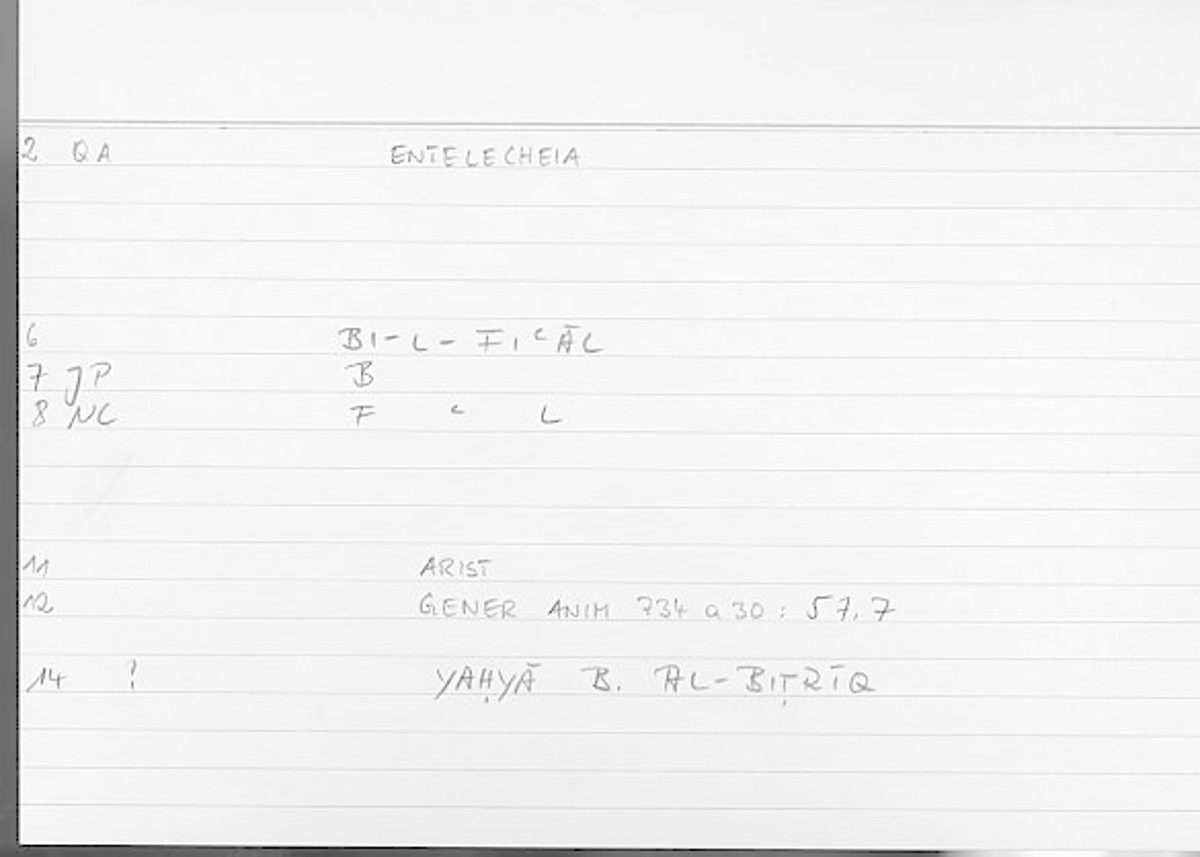 2 QA ENTELECHEIA
6 BI-L-FIʿĀL
7 JP B
8 NC F ʿ L
11 ARIST
12 GENER ANIM 734 a 30 : 57.7
14 ? YAḤYĀ B. AL-BIṬRĪQ